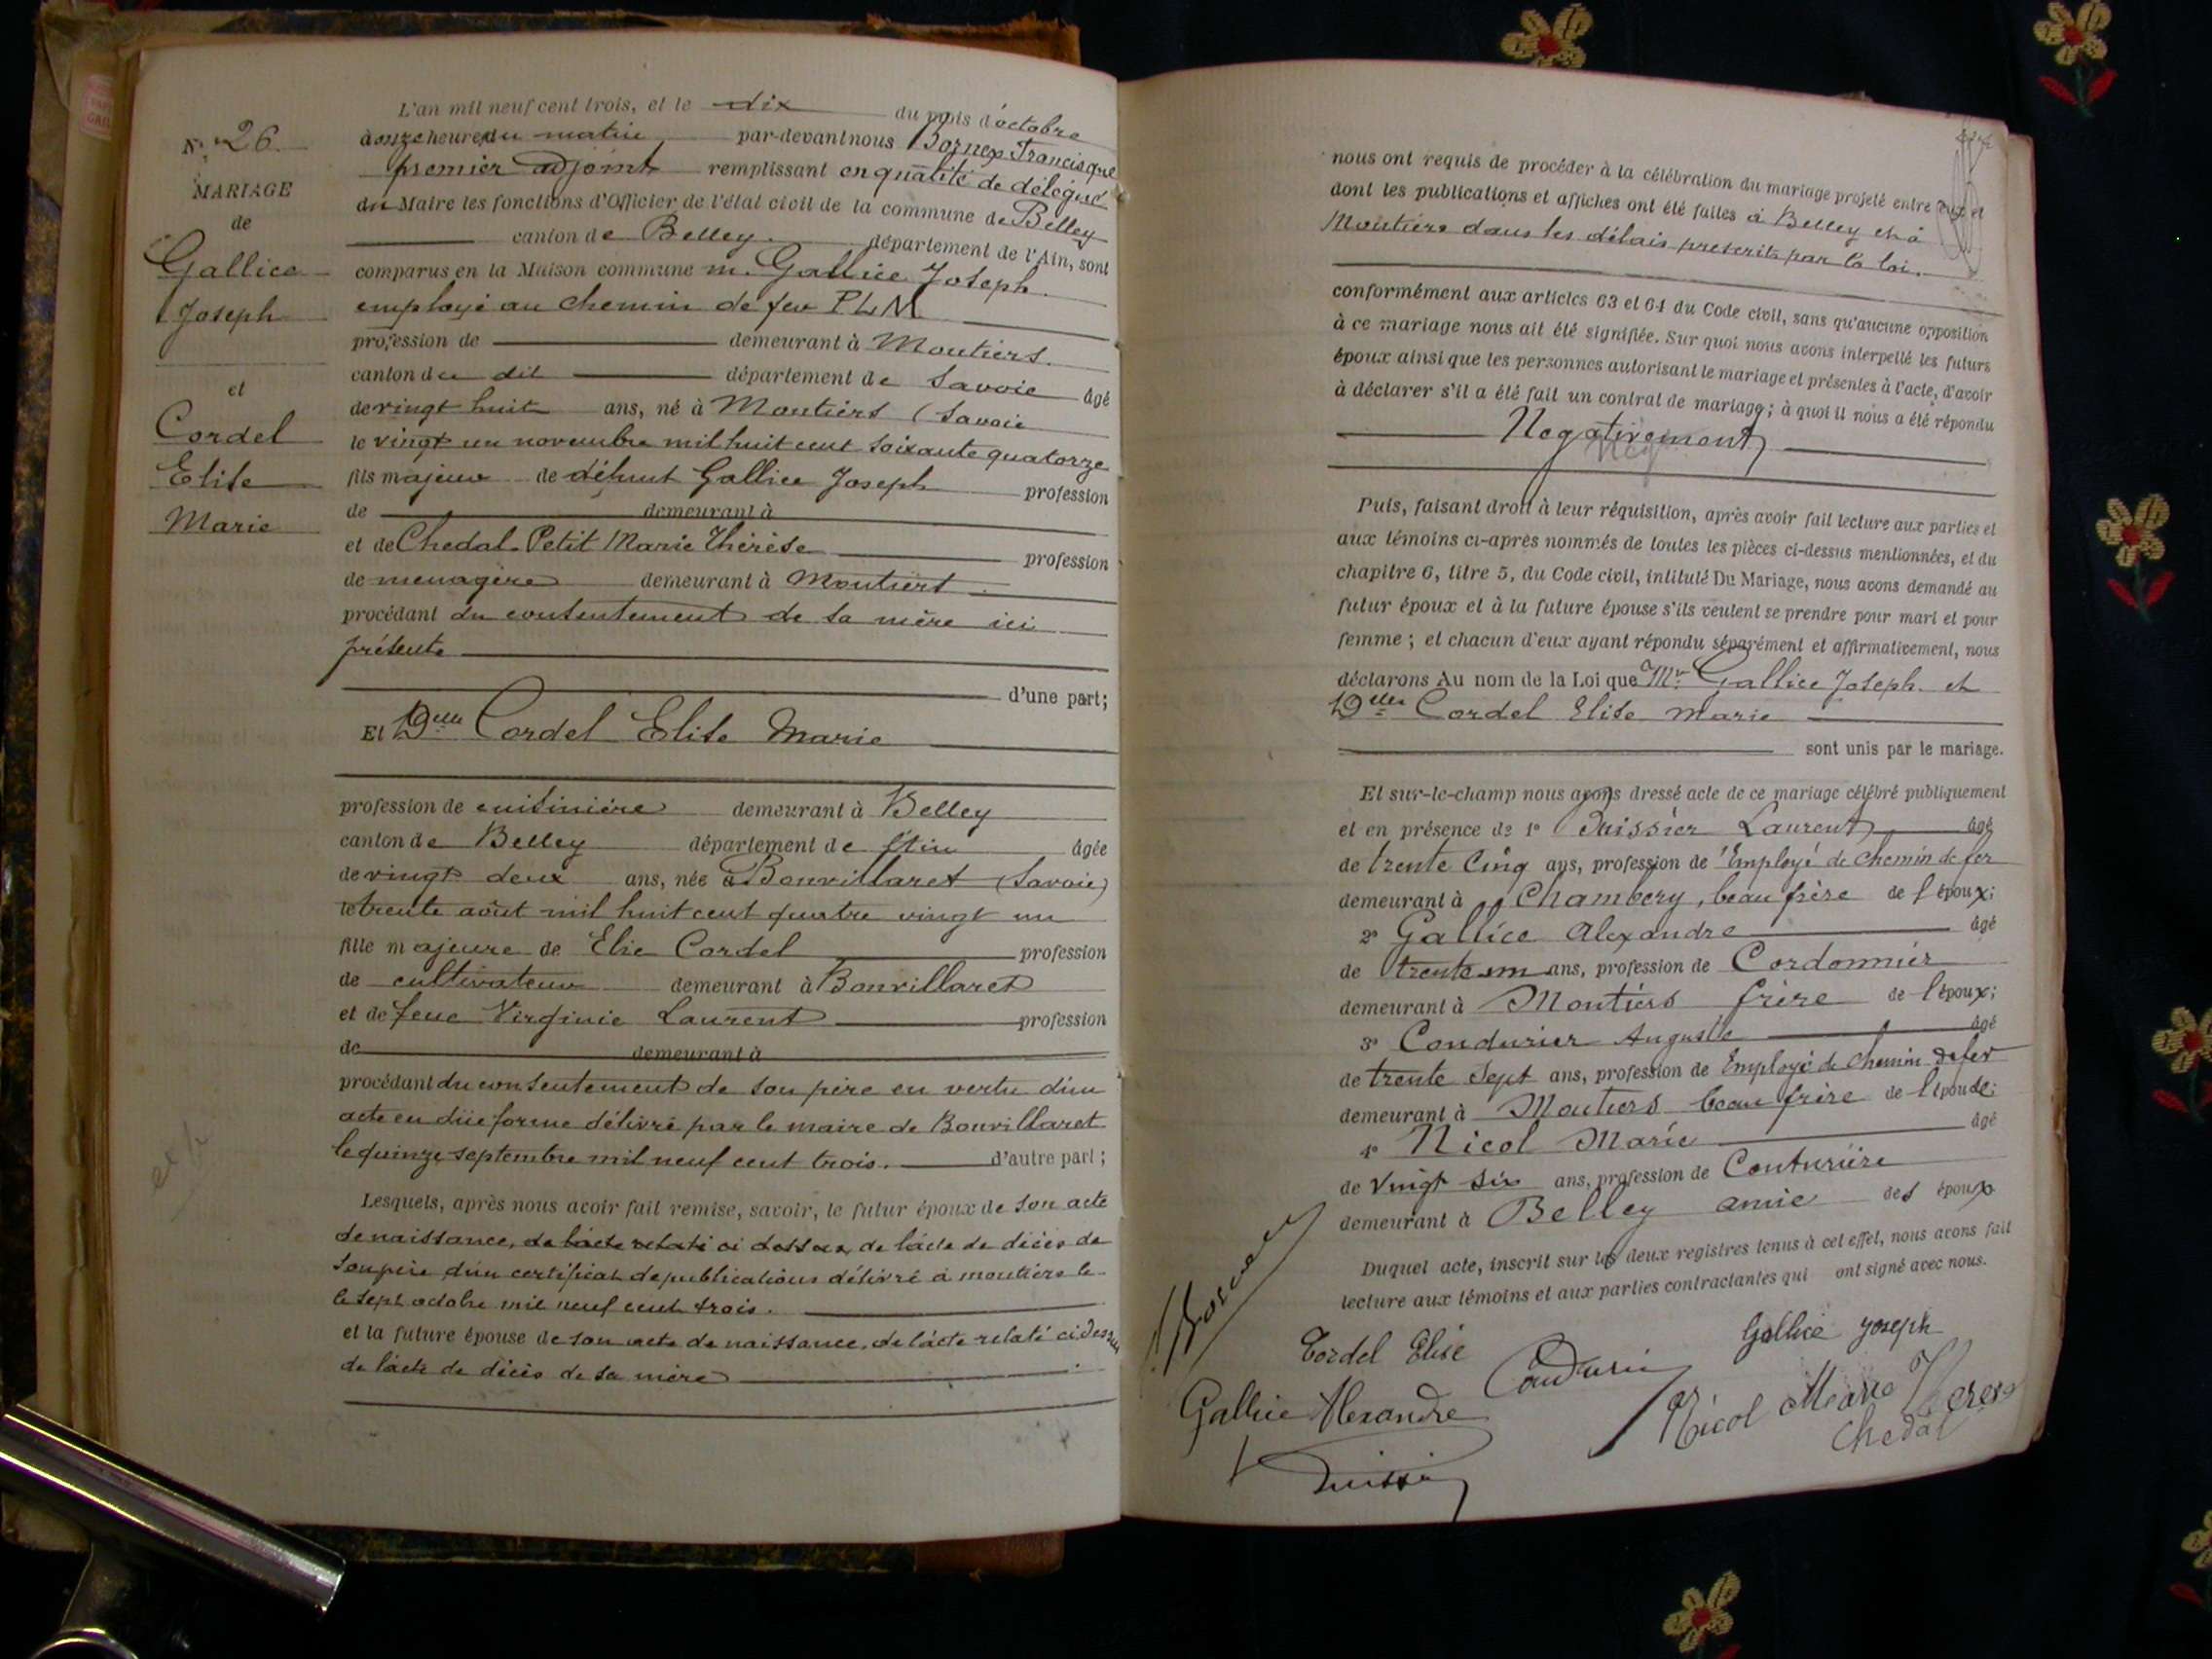 N° 26
MARIAGE
de
Gallice
Joseph
et
Cordel
Elise
Marie
L'an mil neuf cent trois, et le dix du mois d'octobre
à onze heures du matin par-devant nous Bornex Francisque
premier adjoint remplissant en qualité de délégué
du Maire les fonctions d'Officier de l'état civil de la commune de Belley
canton de Belley département de l'Ain, sont
comparus en la Maison commune m. Gallice Joseph
employé au chemin de fer PLM
profession de demeurant à Moutiers.
canton du dit département de Savoie âgé
de vingt huit ans, né à Moutiers (Savoie
le vingt un novembre mil huit cent soixante quatorze
fils majeur de défunt Gallice Joseph profession
de demeurant à
et de Chedal-Petit Marie Thérèse profession
de menagère demeurant à Moutiers
procédant du consentement de sa mère ici
présente
d'une part;
Et Delle Cordel Elise Marie
profession de cuisinière demeurant à Belley
canton de Belley département de l'Ain âgée
de vingt deux ans, née à Bonvillaret (Savoie)
le trente août mil huit cent quatre vingt un
fille majeure de Elie Cordel profession
de cultivateur demeurant à Bonvillaret
et de feue Virginie Laurent profession
de demeurant à
procédant du consentement de son père en vertu d'un
acte en dûe forme délivré par le maire de Bonvillaret
le quinze septembre mil neuf cent trois. d'autre part;
Lesquels, après nous avoir fait remise, savoir, le futur époux de son acte
de naissance, de l'acte relaté ci dessus, de l'acte de décès de
son père d'un certificat de publications délivré à moutiers le
le sept octobre mil neuf cent trois.
et la future épouse de son acte de naissance, de l'acte relaté ci dessus
de l'acte de décès de sa mère
nous ont requis de procéder à la célébration du mariage projeté entre eux et
dont les publications et affiches ont été faites à Belley et à
Moutiers dans les délais prescrits par la loi.
conformément aux articles 63 et 64 du Code civil, sans qu'aucune opposition
à ce mariage nous ait été signifiée. Sur quoi nous avons interpellé les futurs
époux ainsi que les personnes autorisant le mariage et présentes à l'acte, d'avoir
à déclarer s'il a été fait un contrat de mariage; à quoi il nous a été répondu
Negativement
Puis, faisant droit à leur réquisition, après avoir fait lecture aux parties et
aux témoins ci-après nommés de toutes les pièces ci-dessus mentionnées, et du
chapitre 6, titre 5, du Code civil, intitulé Du Mariage, nous avons demandé au
futur époux et à la future épouse s'ils veulent se prendre pour mari et pour
femme; et chacun d'eux ayant répondu séparément et affirmativement, nous
déclarons Au nom de la Loi que Mr Gallice Joseph et
Delle Cordel Elise Marie
sont unis par le mariage.
Et sur-le-champ nous avons dressé acte de ce mariage célébré publiquement
et en présence de 1° Laurent âgé
de trente Cinq ans, profession de Employé de chemin de fer
demeurant à Chambery, beau frère de l'époux;
2° Gallice Alexandre âgé
de trente un ans, profession de Cordonnier
demeurant à Moutiers frère de l'époux;
3° Condurier Auguste âgé
de trente Sept ans, profession de Employé de chemin de fer
demeurant à Moutiers beau frère de l'épouse;
4° Nicol Marie âgé
de vingt six ans, profession de Couturière
demeurant à Belley amie des époux
Duquel acte, inscrit sur les deux registres tenus à cet effet, nous avons fait
lecture aux témoins et aux parties contractantes qui ont signé avec nous.
Gallice Joseph
Cordel Elise
Gallice Alexandre
Nicol Marie
Chedal